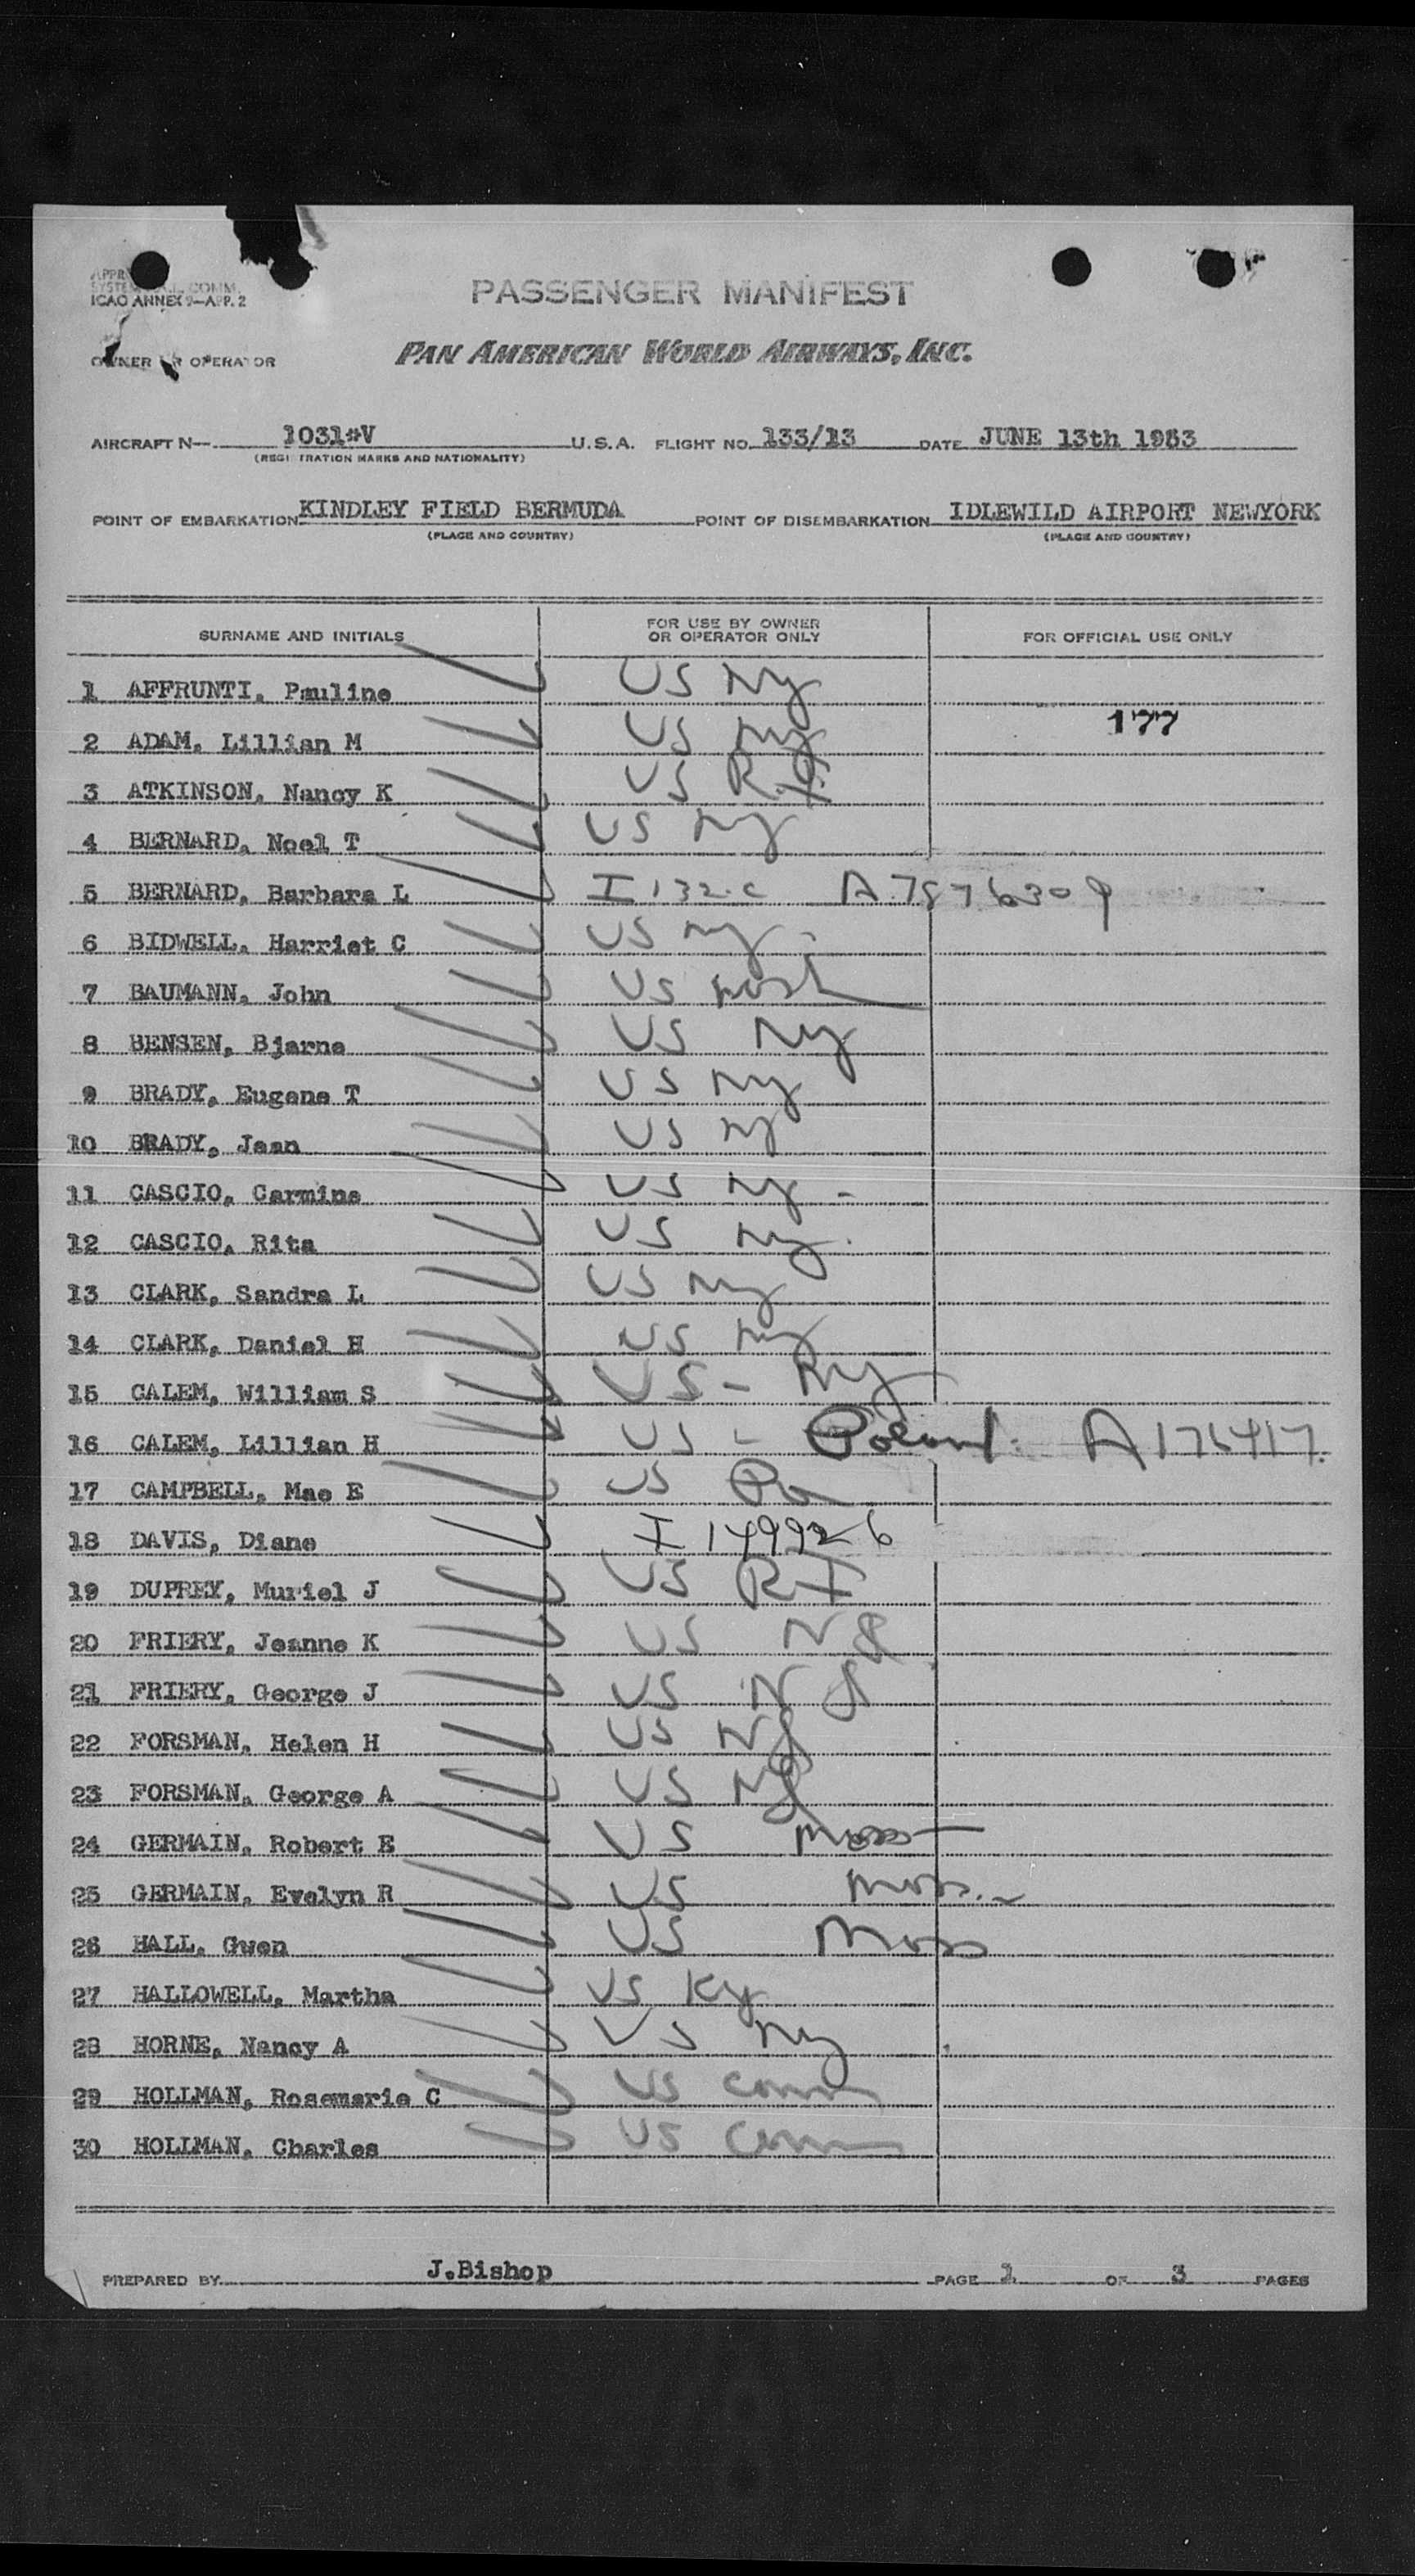 ICAO ANNEX 9—APP. 2
PASSENGER MANIFEST
OWNER OR OPERATOR PAN AMERICAN WORLD AIRWAYS, INC.
AIRCRAFT N— 1031#V U.S.A. FLIGHT NO. 133/13 DATE JUNE 13th 1953
(REGISTRATION MARKS AND NATIONALITY)
POINT OF EMBARKATION KINDLEY FIELD BERMUDA POINT OF DISEMBARKATION IDLEWILD AIRPORT NEWYORK
(PLACE AND COUNTRY) (PLACE AND COUNTRY)
SURNAME AND INITIALS FOR USE BY OWNER OR OPERATOR ONLY FOR OFFICIAL USE ONLY
1 AFFRUNTI, Pauline US Ny
177
2 ADAM, Lillian M US Ny
3 ATKINSON, Nancy K US R.I.
4 BERNARD, Noel T US Ny
5 BERNARD, Barbara L I 132.c A 7876309
6 BIDWELL, Harriet C US Ny
7 BAUMANN, John US
8 BENSEN, Bjarne US Ny
9 BRADY, Eugene T US Ny
10 BRADY, Jean US Ny
11 CASCIO, Carmine US Ny -
12 CASCIO, Rita US Ny.
13 CLARK, Sandra L US Ny
14 CLARK, Daniel H US Ny
15 CALEM, William S US - Ny
16 CALEM, Lillian H US - Poland. A176417.
17 CAMPBELL, Mae E US Pa
18 DAVIS, Diane I 149992 6
19 DUPREY, Muriel J US RI
20 FRIERY, Jeanne K US NJ
21 FRIERY, George J US NJ
22 FORSMAN, Helen H US NJ
23 FORSMAN, George A US NJ
24 GERMAIN, Robert E US Mass
25 GERMAIN, Evelyn R US Mass.
26 HALL, Gwen US Mass
27 HALLOWELL, Martha US Ky
28 HORNE, Nancy A US Ny
29 HOLLMAN, Rosemarie C US Conn
30 HOLLMAN, Charles US Conn
PREPARED BY J.Bishop PAGE 1 OF 3 PAGES